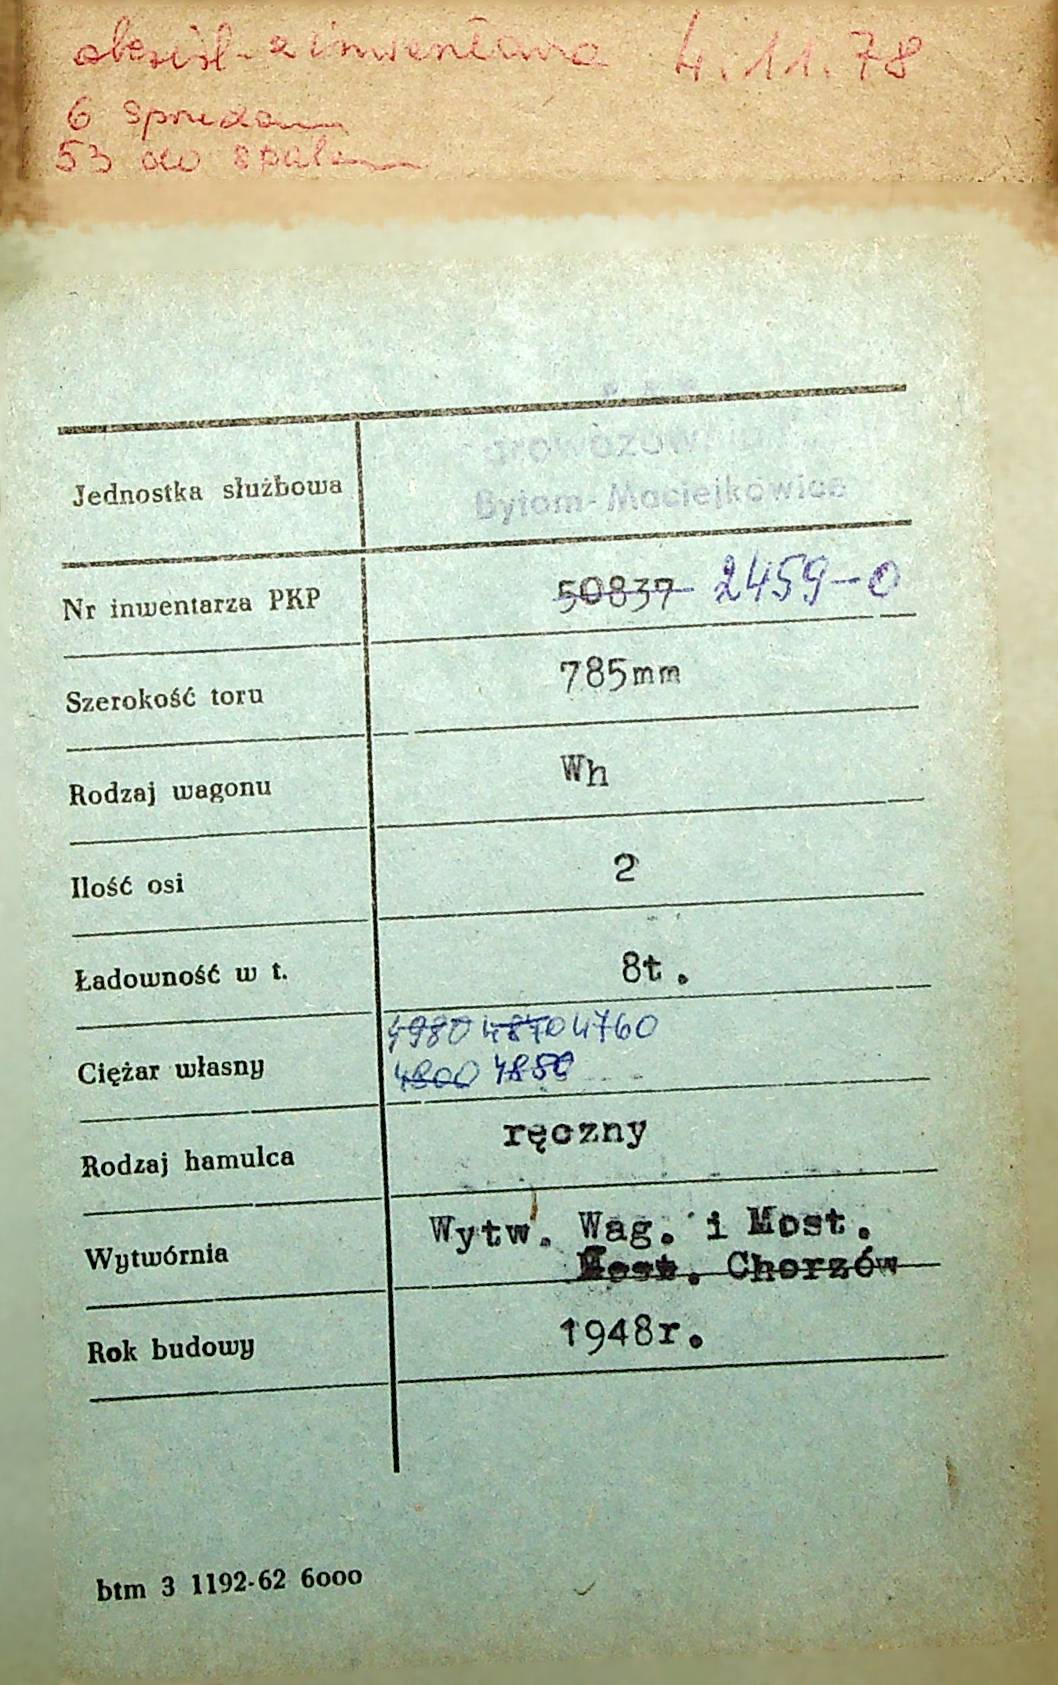 4.11.78
6
53 do
Jednostka służbowa
Parowozownia
Bytom-Maciejkowice
Nr inwentarza PKP 50837 2459-0
Szerokość toru 785mm
Rodzaj wagonu Wh
Ilość osi 2
Ładowność w t. 8t.
4980 4870 4760
Ciężar własny 4800 4850
Rodzaj hamulca ręczny
Wytw. Wag. i Most.
Wytwórnia Most. Chorzów
Rok budowy 1948r.
btm 3 1192-62 6000